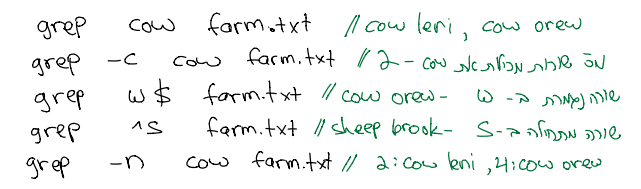 grep cow farm.txt // cow leni, cow orew
grep -c cow farm.txt // 2 - cow מס' שורות מכולת את
grep w$ farm.txt // cow orew - w -שורה נגמרת ב
grep ^s farm.txt // sheep brook - s -שורה מתחילה ב
grep -n cow farm.txt // 2:cow leni, 4:cow orew